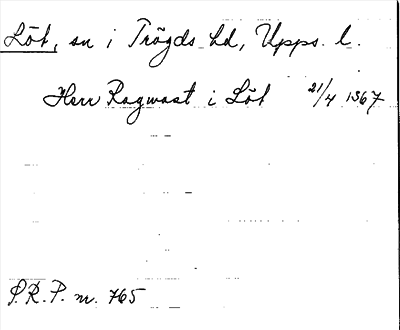 Löt, sn i Trögds hd, Upps. l.
Herr Ragwast i Löt 21/4 1367
S.R.P. nr. 765